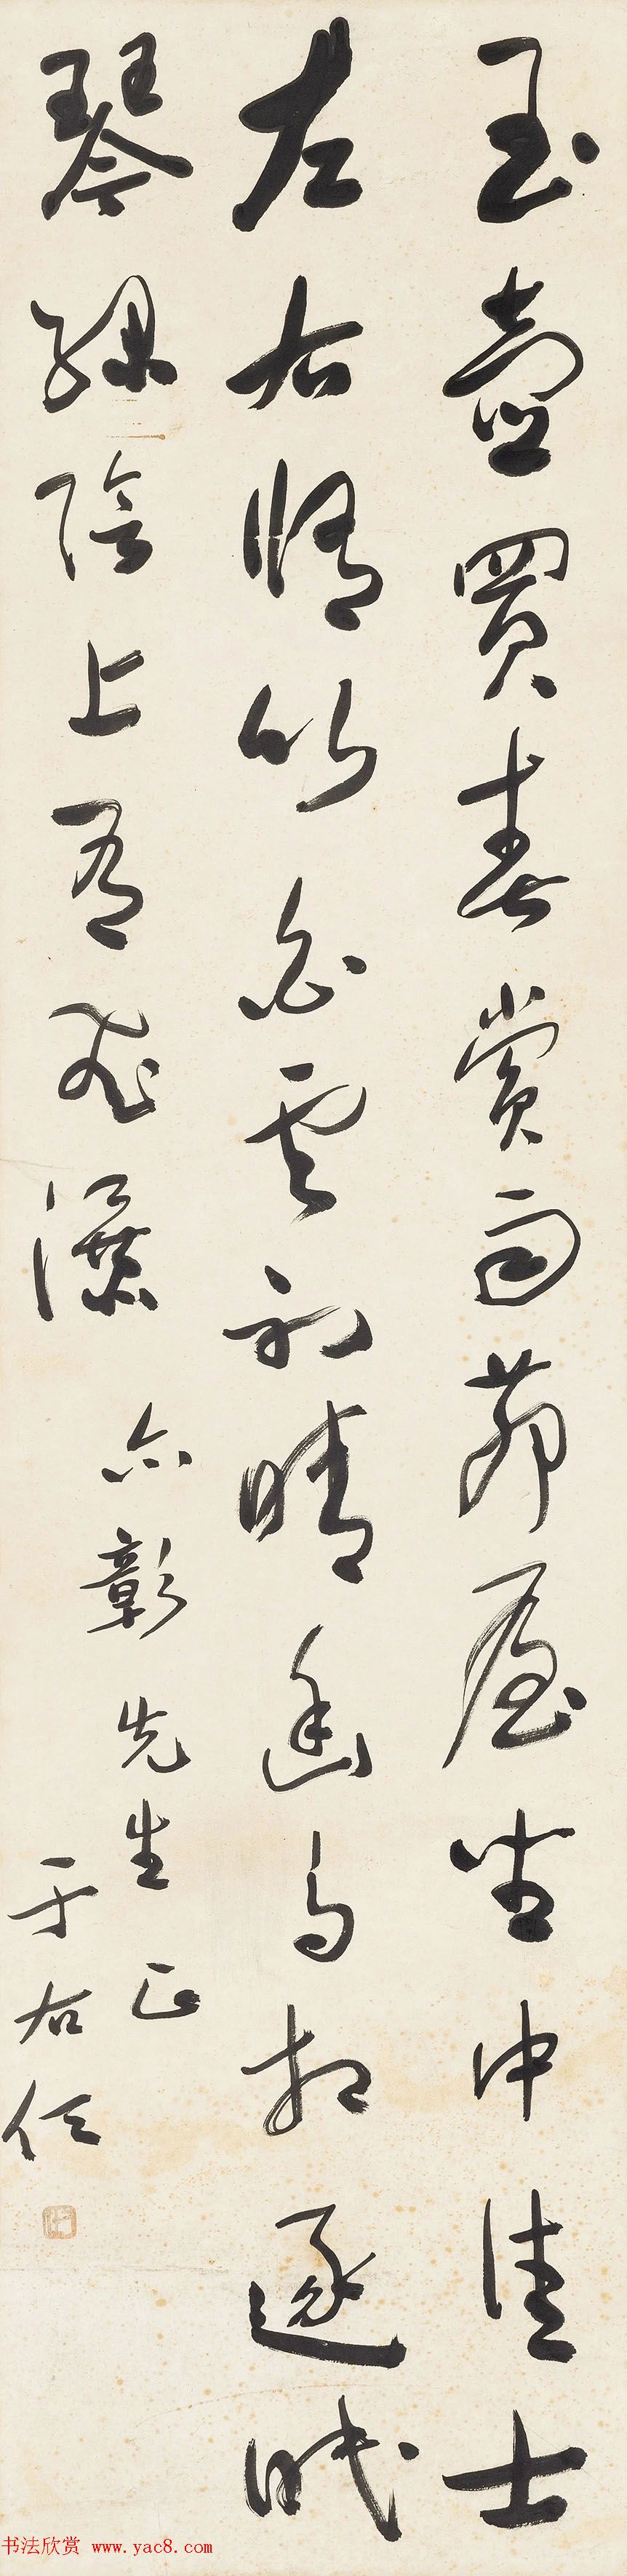 玉壺買春賞雨茆屋坐中佳士
左右脩竹白雲初晴幽鳥相逐眠
琴綠陰上有飛瀑
亦彰先生正
于右任
书法欣赏 www.yac8.com